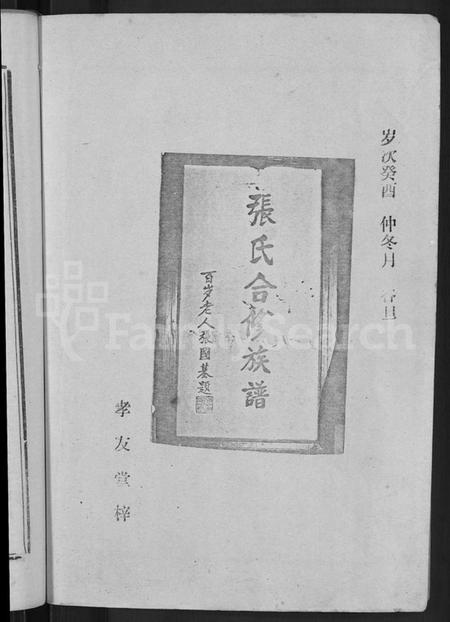 岁次癸酉 仲冬月 谷旦
張氏合修族譜
百岁老人張國基題
孝友堂梓
FamilySearch